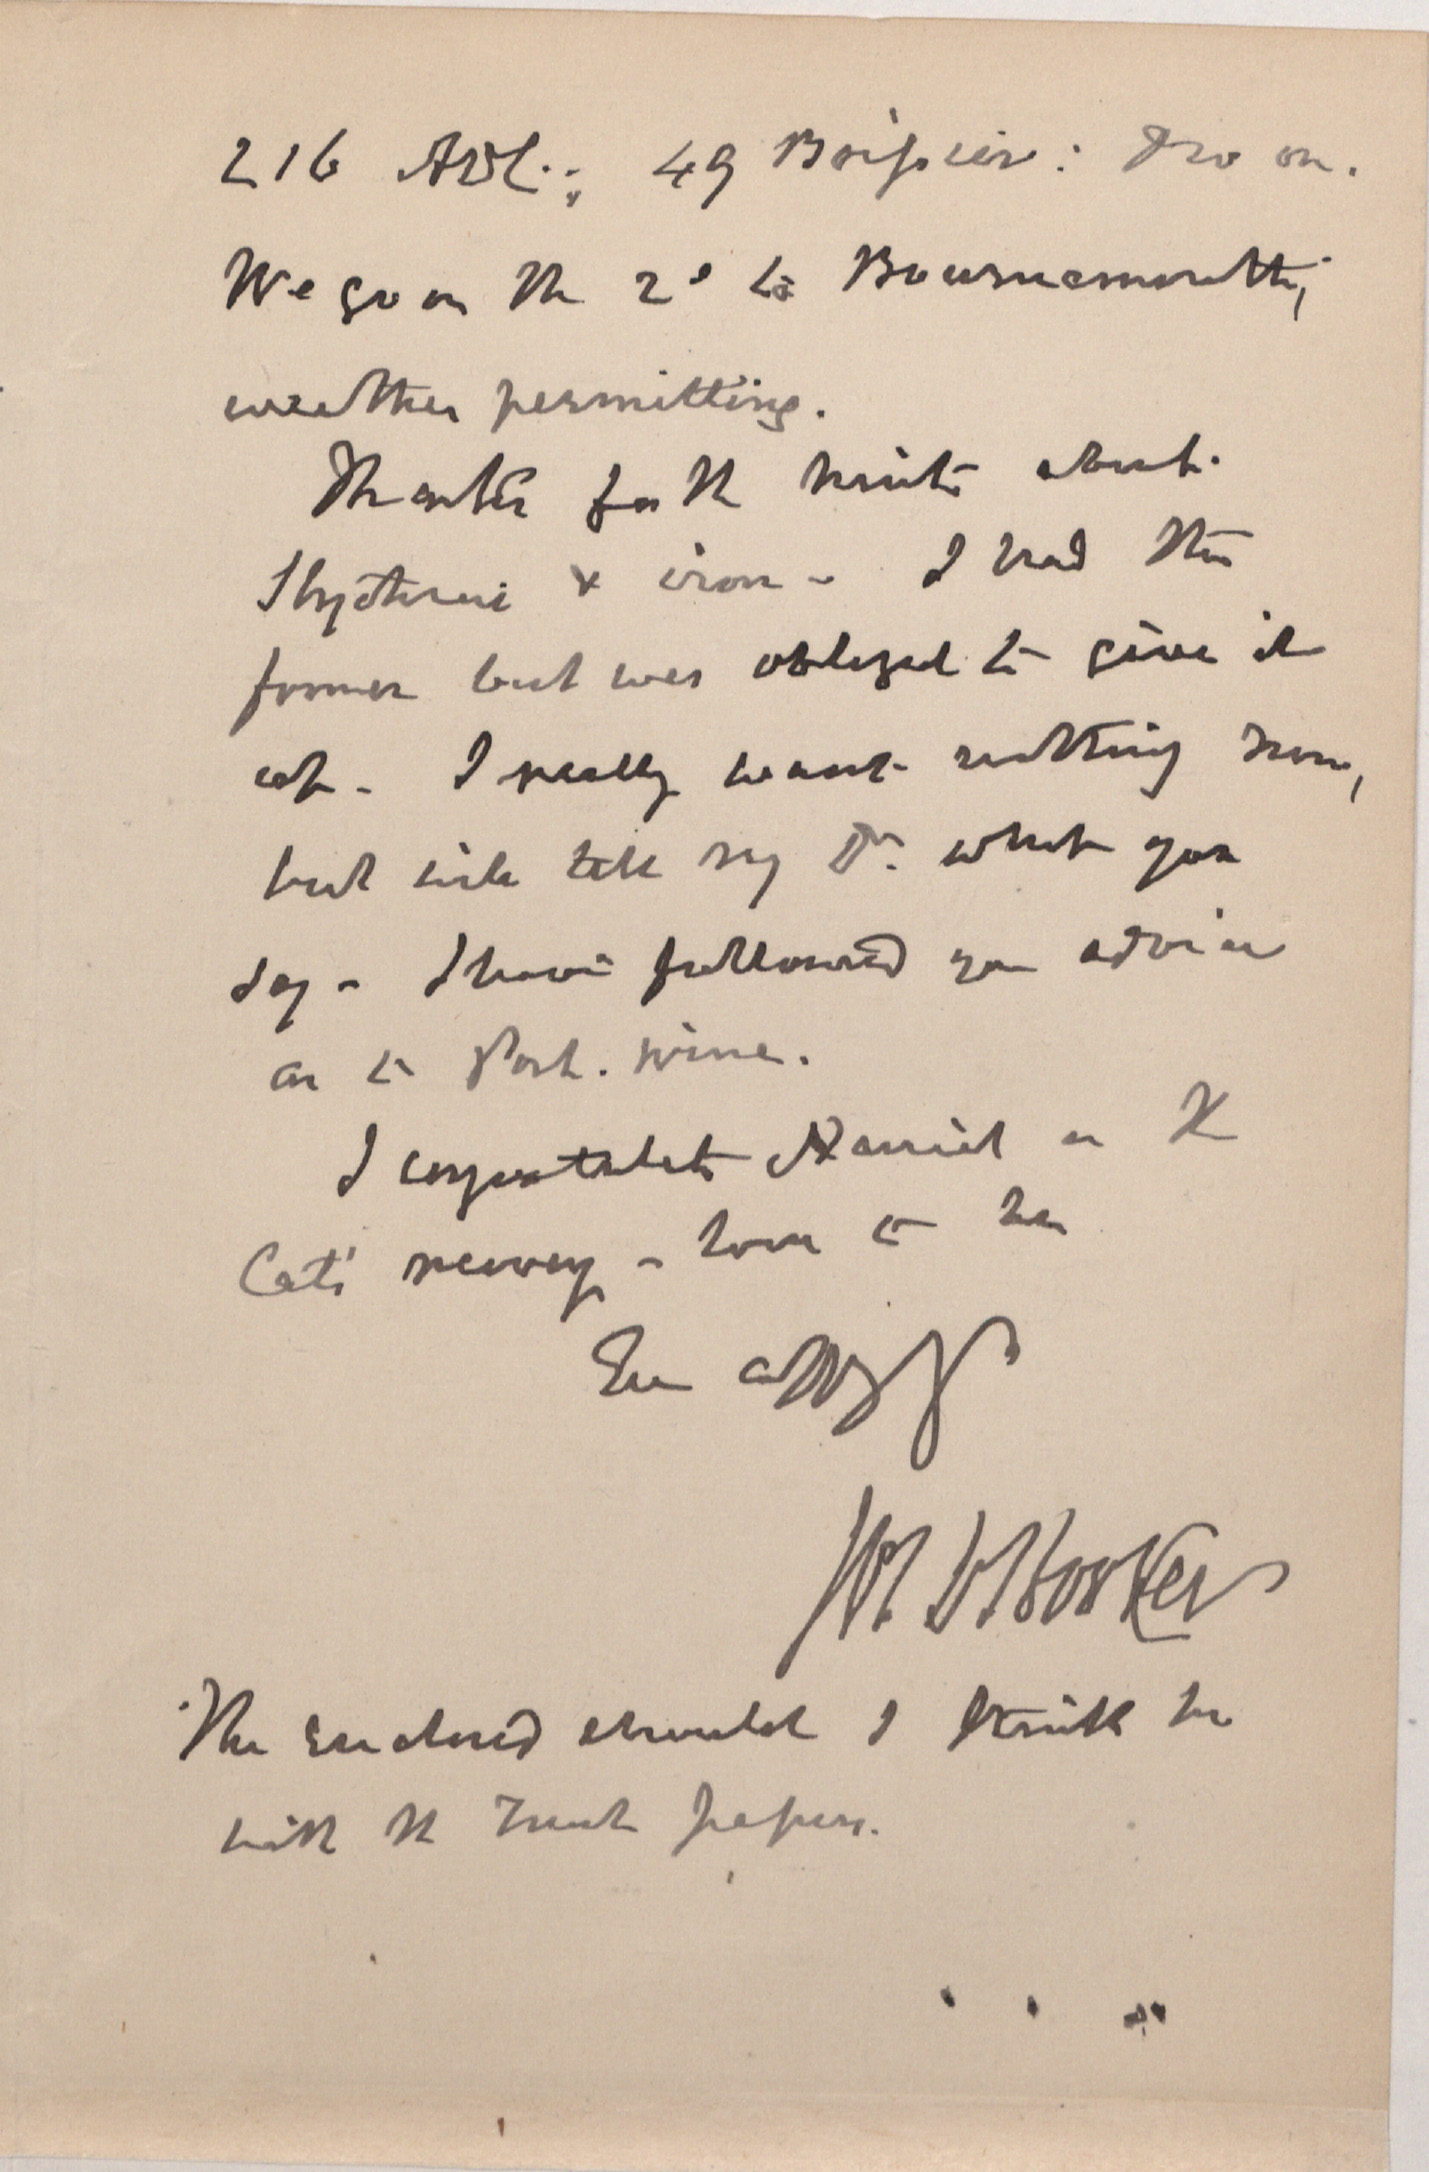 216 ADC.; 49 Boissier: & so on.
We go on the 2d to Bournemouth,
weather permitting.
Thanks for the hints about
Strychnine & iron — I had the
former but was obliged to give it
up — I really want nothing now,
but will tell my Dr. what you
say — I have followed your advice
as to Port. wine.
I congratulate Harriet on the
Cat's recovery — love to her
Ever affy yrs
Jos D Hooker
The enclosed should I think be
with the Trust papers.